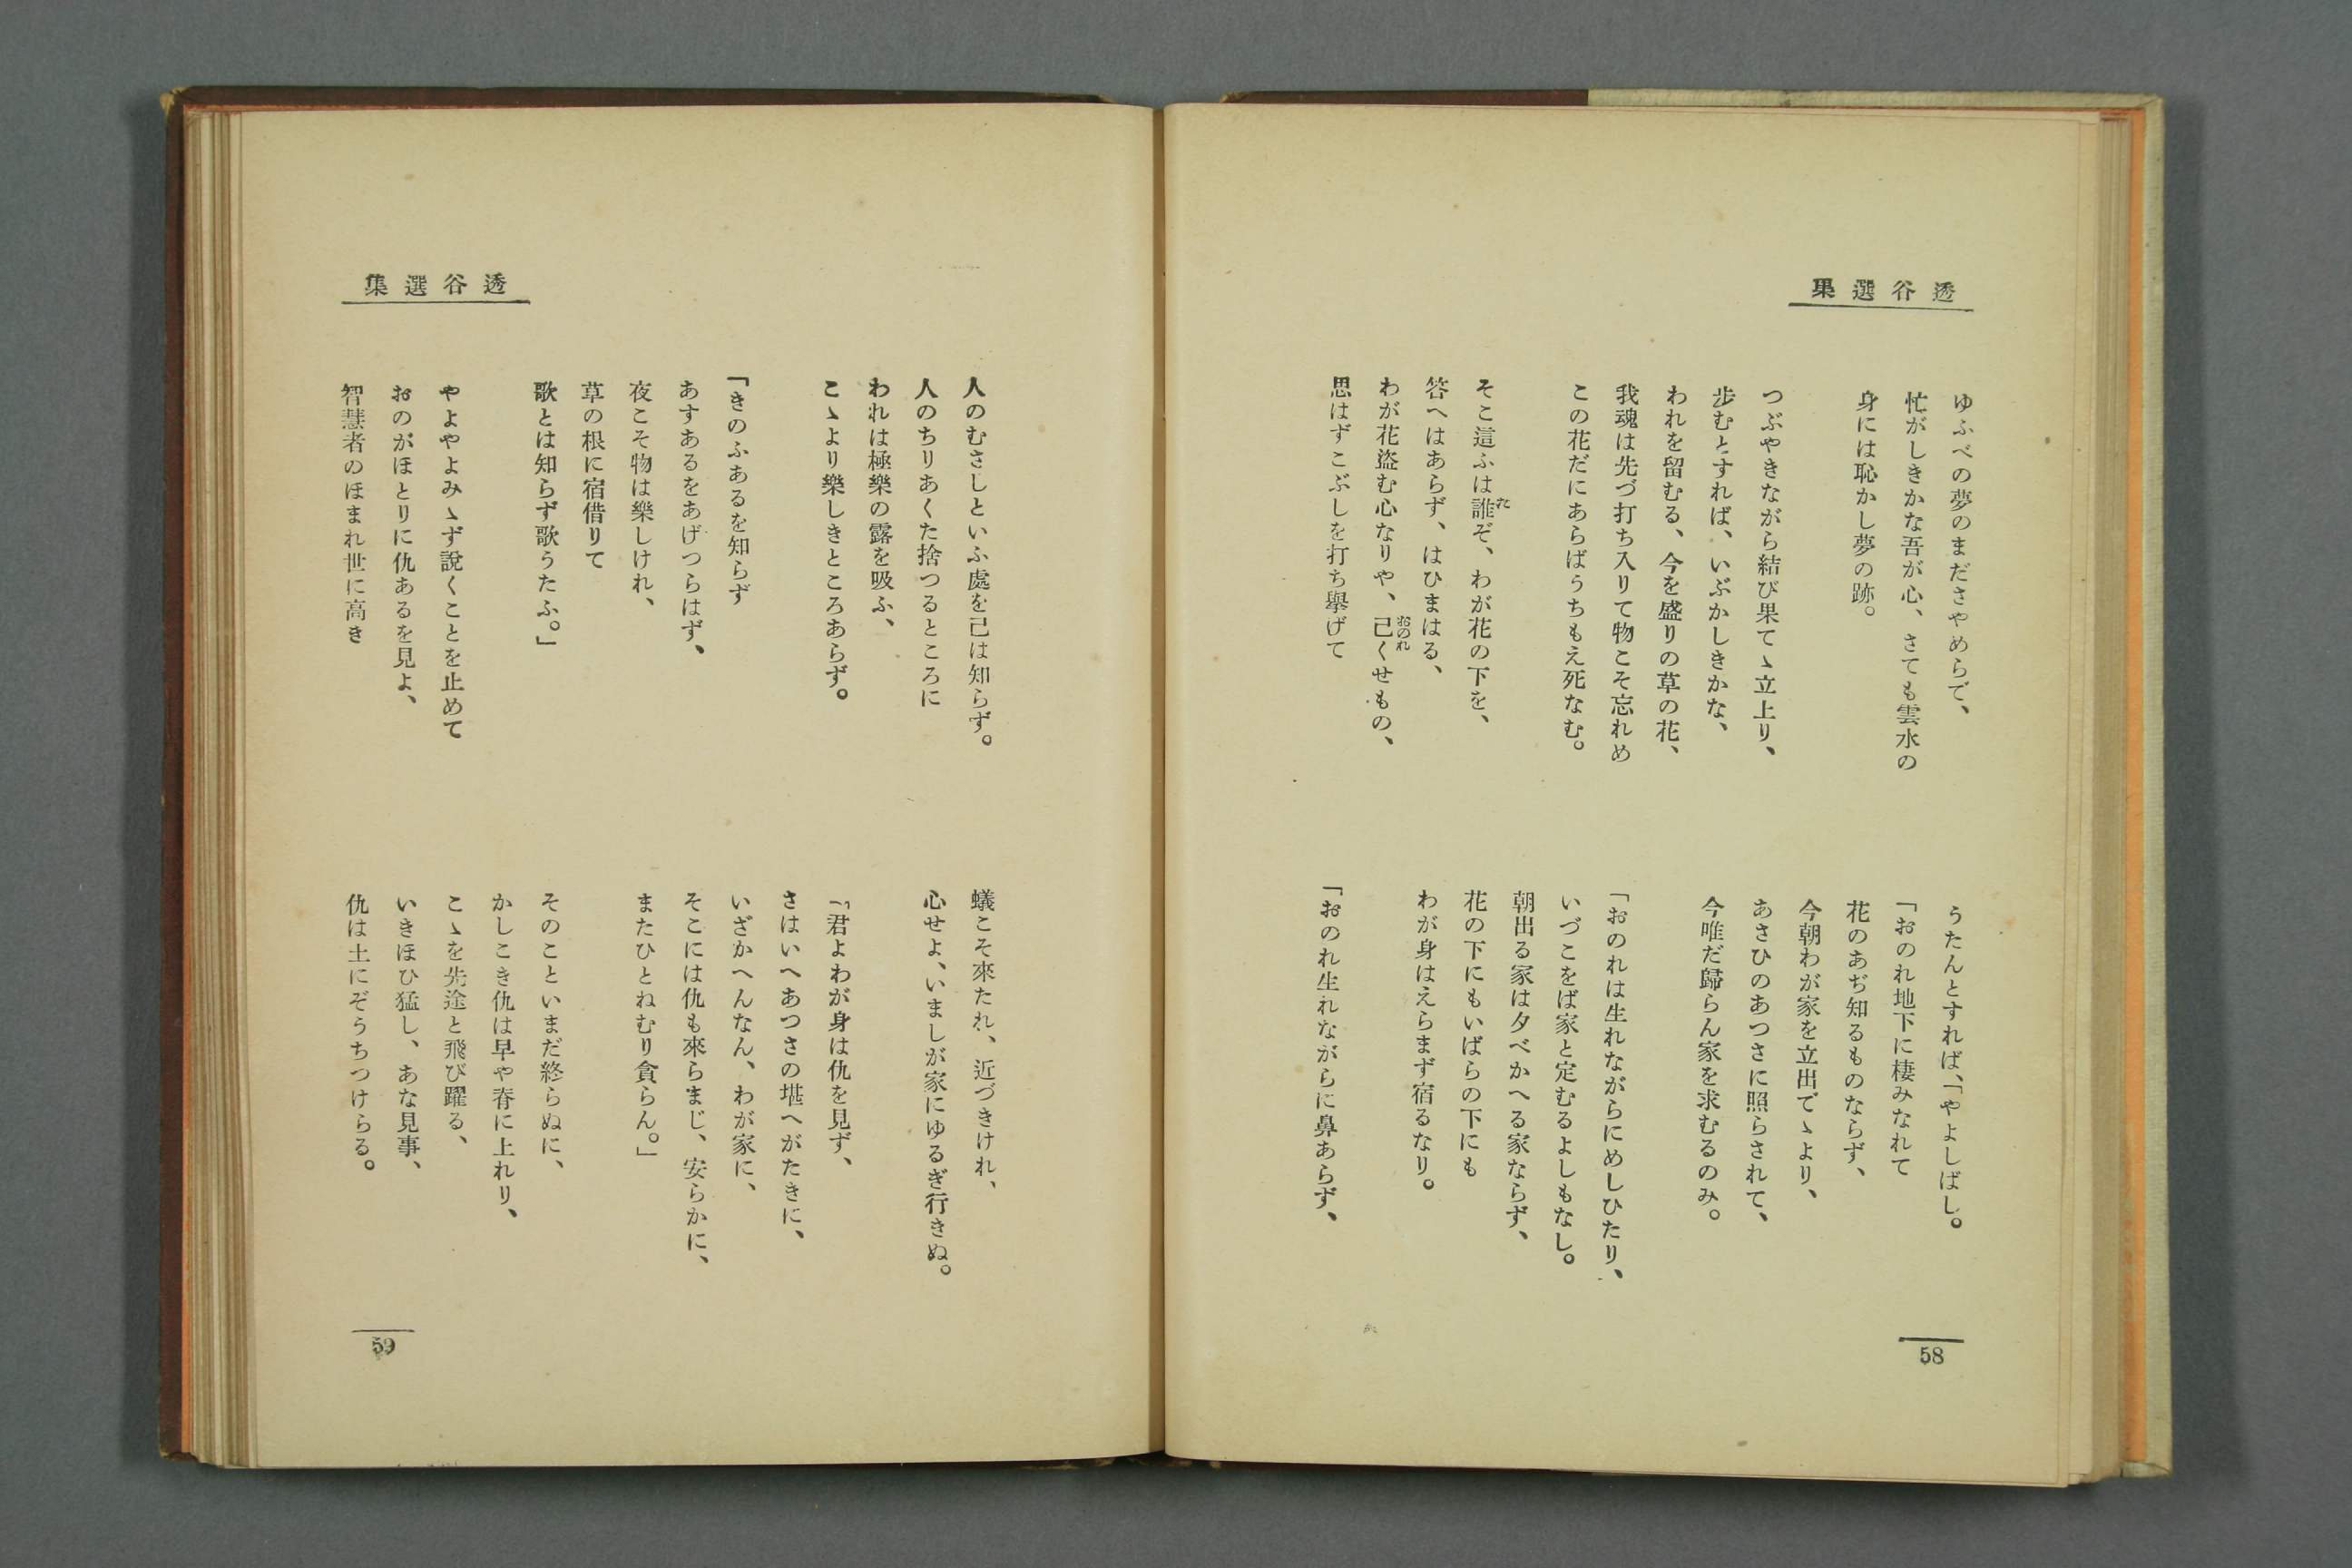 透谷選集
ゆふべの夢のまださやめらで、
忙がしきかな吾が心、さても雲水の
身には恥かし夢の跡。
つぶやきながら結び果てゝ立上り、
歩むとすれば、いぶかしきかな、
われを留むる、今を盛りの草の花、
我魂は先づ打ち入りて物こそ忘れめ
この花だにあらばうちもえ死なむ。
そこ這ふは誰ぞ、わが花の下を、
答へはあらず、はひまはる、
わが花盜む心なりや、己くせもの、
思はずこぶしを打ち擧げて
うたんとすれば、「やよしばし。
「おのれ地下に棲みなれて
花のあぢ知るものならず、
今朝わが家を立出でゝより、
あさひのあつさに照らされて、
今唯だ歸らん家を求むるのみ。
「おのれは生れながらにめしひたり、
いづこをば家と定むるよしもなし。
朝出る家は夕べかへる家ならず、
花の下にもいばらの下にも
わが身はえらまず宿るなり。
「おのれ生れながらに鼻あらず、
58
透谷選集
人のむさしといふ處を己は知らず。
人のちりあくた捨つるところに
われは極樂の露を吸ふ、
こゝより樂しきところあらず。
「きのふあるを知らず
あすあるをあげつらはず、
夜こそ物は樂しけれ、
草の根に宿借りて
歌とは知らず歌うたふ。」
やよやよみゝず說くことを止めて
おのがほとりに仇あるを見よ、
智慧者のほまれ世に高き
蟻こそ來たれ、近づきけれ、
心せよ、いましが家にゆるぎ行きぬ。
「君よわが身は仇を見ず、
さはいへあつさの堪へがたきに、
いざかへんなん、わが家に、
そこには仇も來らまじ、安らかに、
またひとねむり貪らん。」
そのこといまだ終らぬに、
かしこき仇は早や脊に上れり、
こゝを先途と飛び躍る、
いきほひ猛し、あな見事、
仇は土にぞうちつけらる。
59